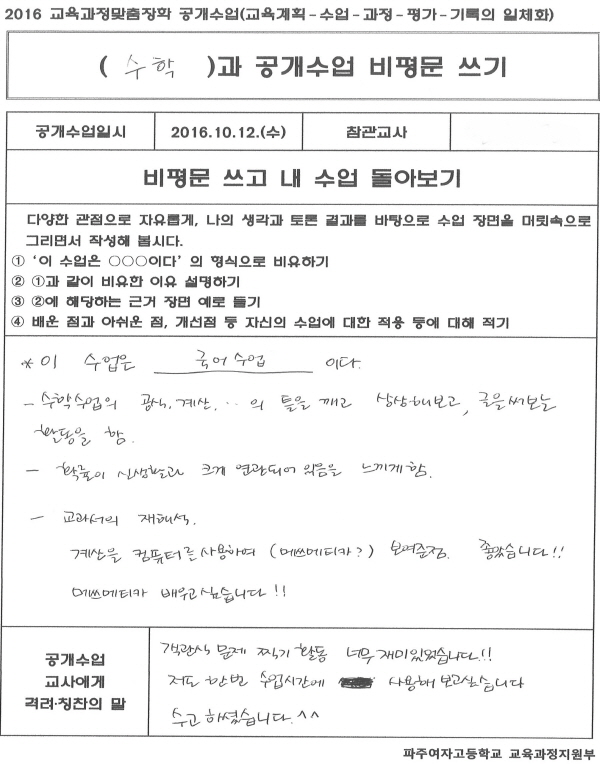 2016 교육과정맞춤장학 공개수업(교육계획-수업-과정-평가-기록의 일체화)
( 수학 )과 공개수업 비평문 쓰기
공개수업일시 2016.10.12.(수) 참관교사
비평문 쓰고 내 수업 돌아보기
다양한 관점으로 자유롭게, 나의 생각과 토론 결과를 바탕으로 수업 장면을 머릿속으로
그리면서 작성해 봅시다.
① '이 수업은 ○○○이다' 의 형식으로 비유하기
② ①과 같이 비유한 이유 설명하기
③ ②에 해당하는 근거 장면 예로 들기
④ 배운 점과 아쉬운 점, 개선점 등 자신의 수업에 대한 적용 등에 대해 적기
* 이 수업은 국어수업 이다.
- 수학수업의 공식, 계산, ‥의 틀을 깨고 상상해보고, 글을써보는
활동을 함.
- 확률이 실생활과 크게 연관되어 있음을 느끼게함.
- 교과서의 재해석.
계산을 컴퓨터를 사용하여 (메쓰메티카?) 보여준점. 좋았습니다!!
메쓰메티카 배우고싶습니다!!
공개수업
교사에게
격려·칭찬의 말
객관식 문제 찍기 활동 너무 재미있었습니다!!
저도 한번 수업시간에 사용해 보고싶습니다
수고하셨습니다.^^
파주여자고등학교 교육과정지원부